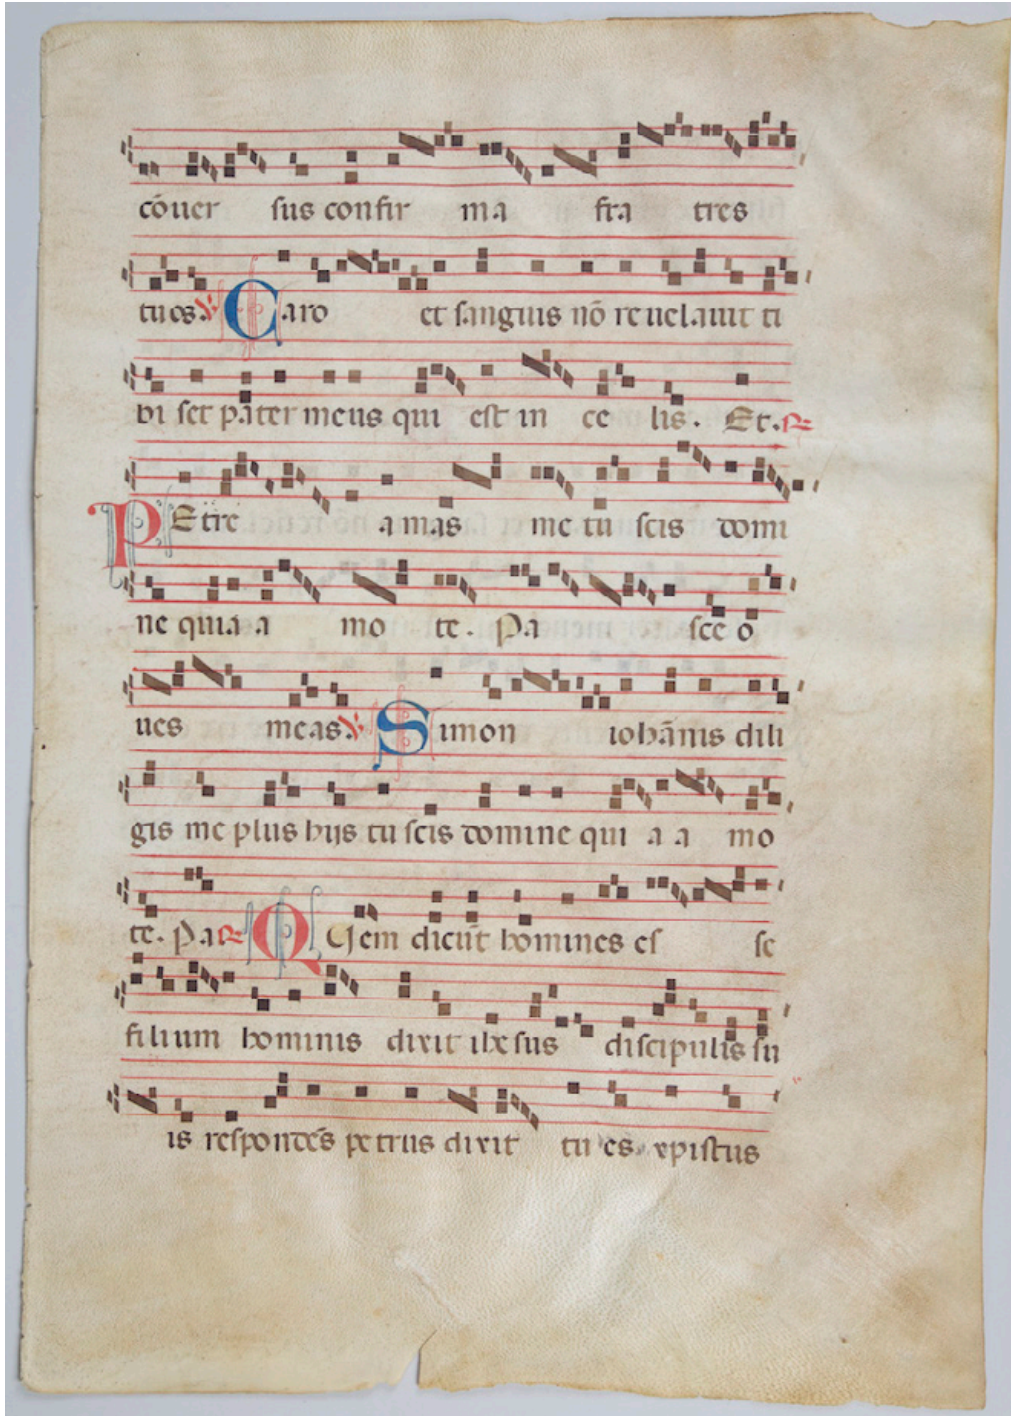 cōuer sus confir ma fra tres
tuos. ℣ Caro et sanguis nō reuelauit ti
bi set pater meus qui est in ce lis. Et. ℟
PEtre amas me tu scis domi
ne quia a mo te. Pa sce o
ues meas. ℣ Simon iohānis dili
gis me plus hijs tu scis domine qui a a mo
te. Pa ℟ QUem dicūt homines es se
filium hominis dixit ihesus discipulis su
is respondēs petrus dixit tu es xpistus